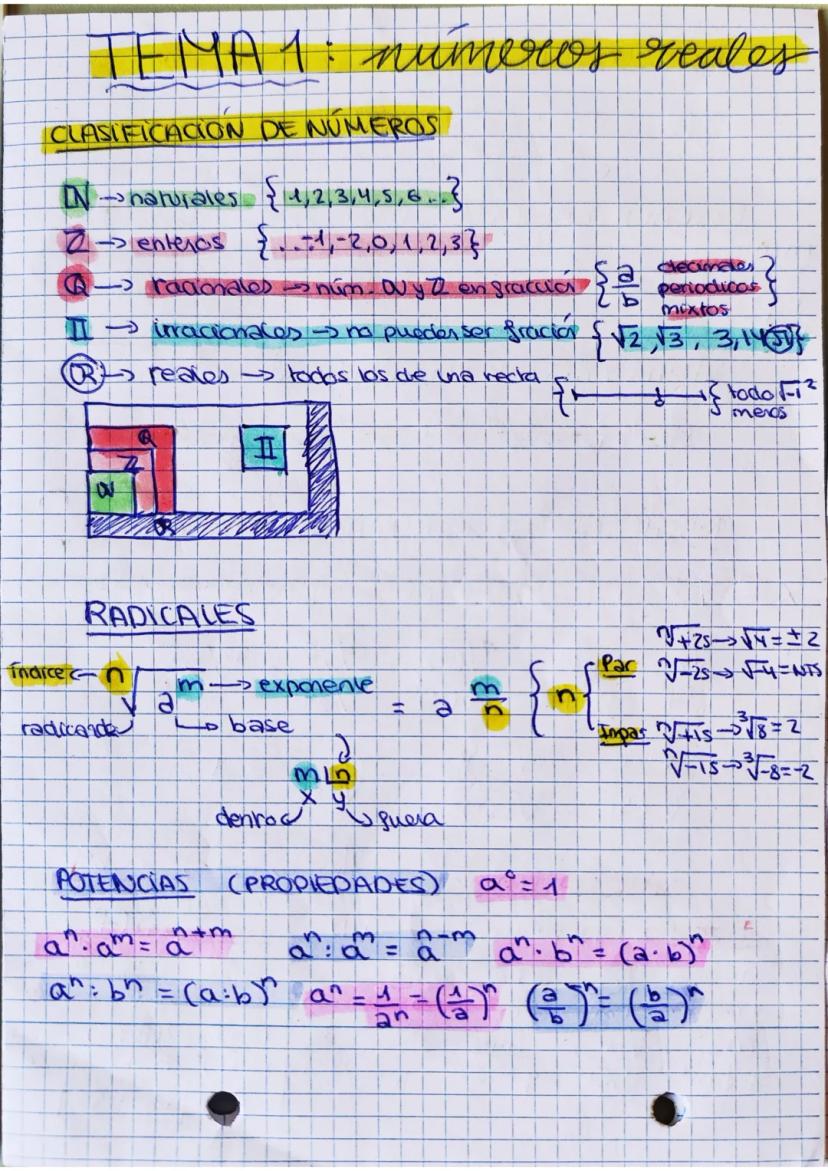 TEMA 1: números reales
CLASIFICACIÓN DE NÚMEROS
ℕ → naturales {1,2,3,4,5,6...}
ℤ → enteros {...-1,-2,0,1,2,3}
ℚ → racionales → núm. ℕ y ℤ en fracción { a/b decimales periodicos mixtos }
𝕀 → irracionales → no pueden ser fración {√2, √3, 3,14 π}
ℝ → reales → todos los de una recta { 0 } todo menos √-1²
ℚ
ℤ
ℕ
𝕀
ℝ
RADICALES
índice ← n√a^m → exponente = a^(m/n) { n {
radicando
base
Par ⁿ√+25 → √4 = ± 2
ⁿ√-25 → √-4 = NTS
Impar ⁿ√+15 → ³√8 = 2
ⁿ√-15 → ³√-8 = -2
m n
x y
dentro fuera
POTENCIAS (PROPIEDADES) a⁰ = 1
aⁿ · a^m = a^(n+m) aⁿ : a^m = a^(n-m) aⁿ · bⁿ = (a · b)ⁿ
aⁿ : bⁿ = (a:b)ⁿ aⁿ = 1/aⁿ = (1/a)ⁿ (a/b)ⁿ = (b/a)ⁿ